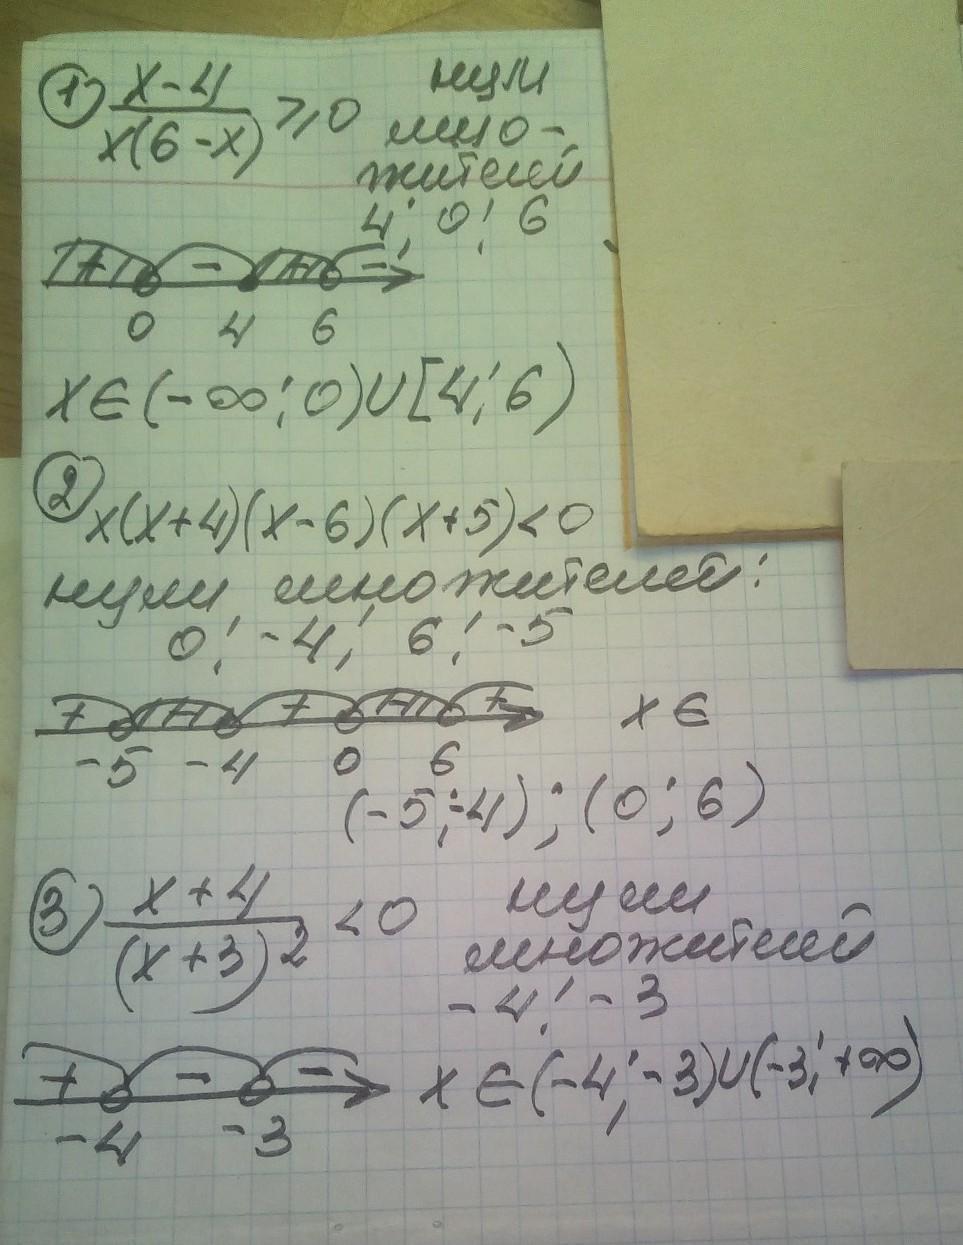 ① x-4 / x(6-x) ≥ 0 нули
мно-
жителей
4; 0; 6
+ - + -
0 4 6
x ∈ (-∞; 0) ∪ [4; 6)
②
x(x+4)(x-6)(x+5) < 0
нули множителей:
0; -4; 6; -5
+ - + - + x ∈
-5 -4 0 6
(-5; -4); (0; 6)
③ x+4 / (x+3)² < 0 нули
множителей
-4; -3
+ - - x ∈ (-4; -3) ∪ (-3; +∞)
-4 -3